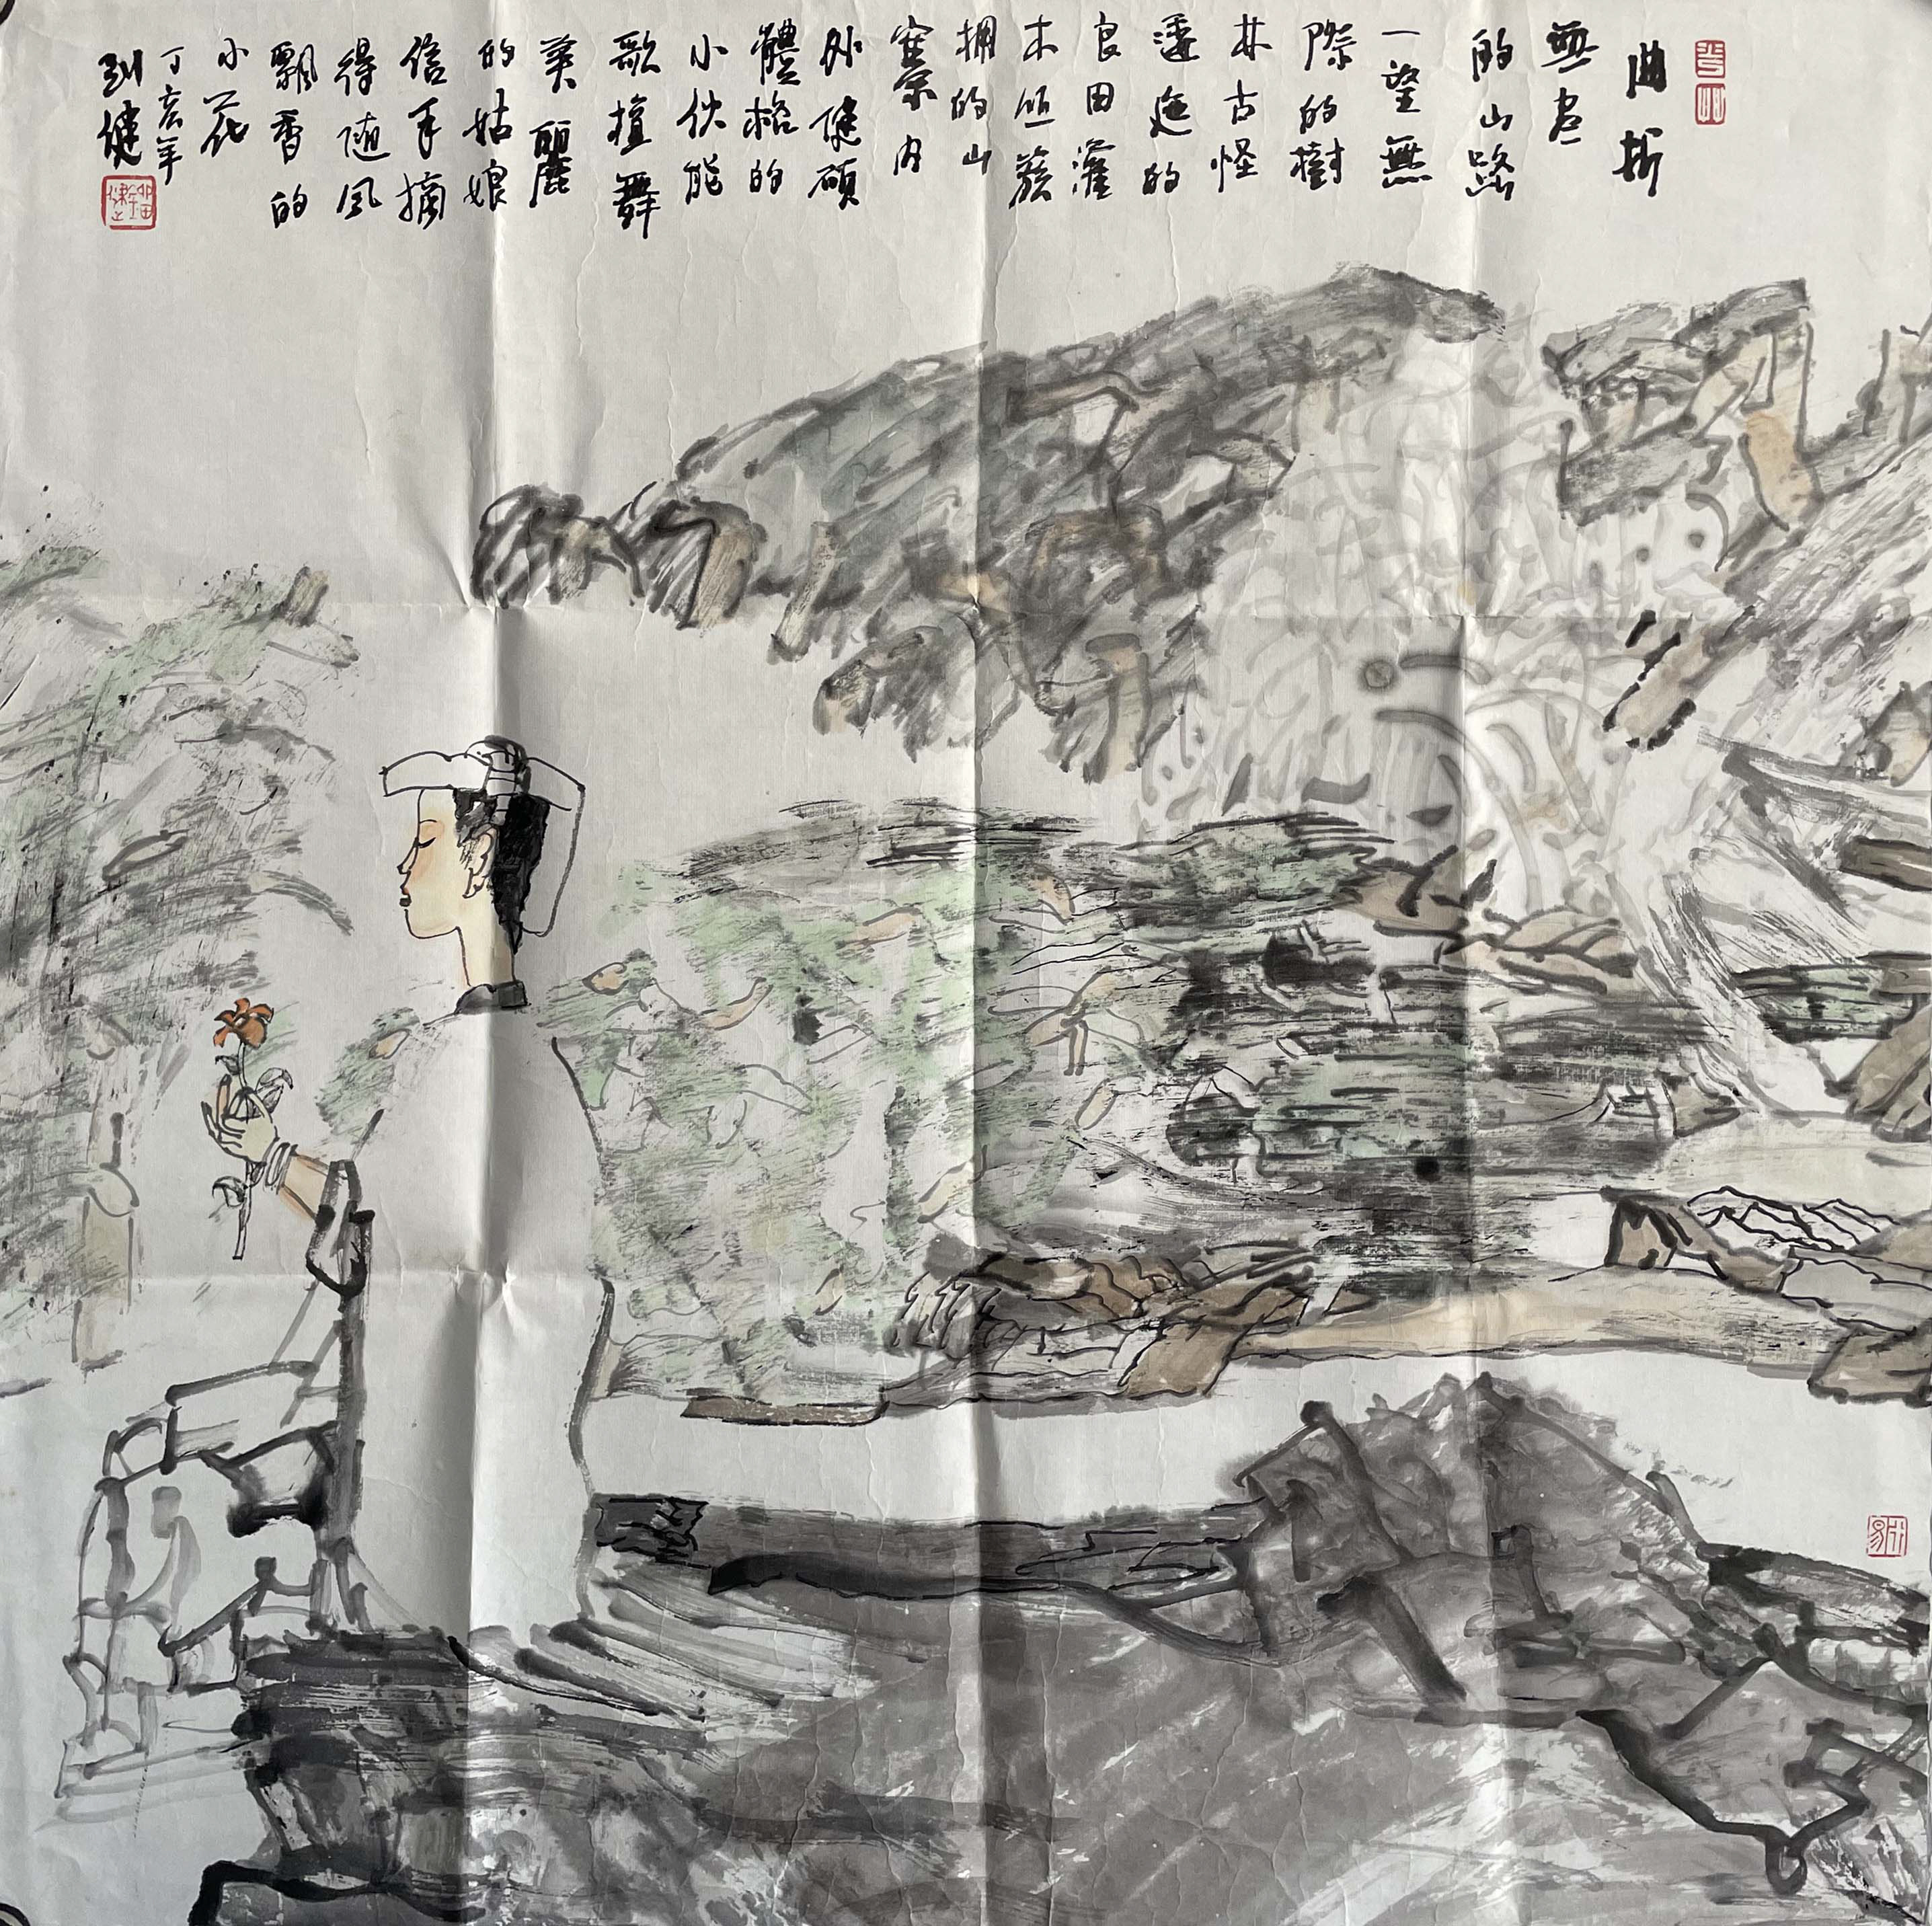 曲折
無尽
的山路
一望無
際的樹
林古怪
逶迤的
良田灌
木丛簇
拥的山
寨内
外健硕
體格的
小伙能
歌擅舞
美麗
的姑娘
信手摘
得随风
飄香的
小花
丁亥年
刘健